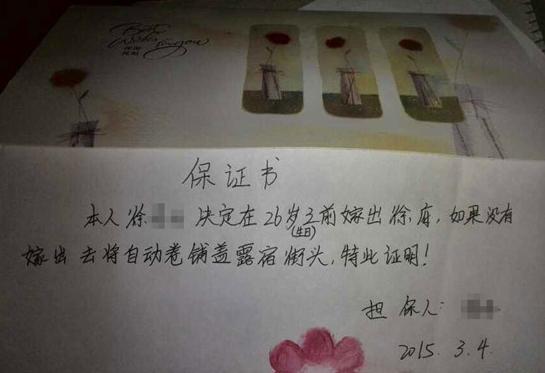 Best
Wishes
for you
保证书
本人徐 决定在26岁之前嫁出徐府,如果没有
(生日)
嫁出去将自动卷铺盖露宿街头,特此证明!
担保人:
2015.3.4.